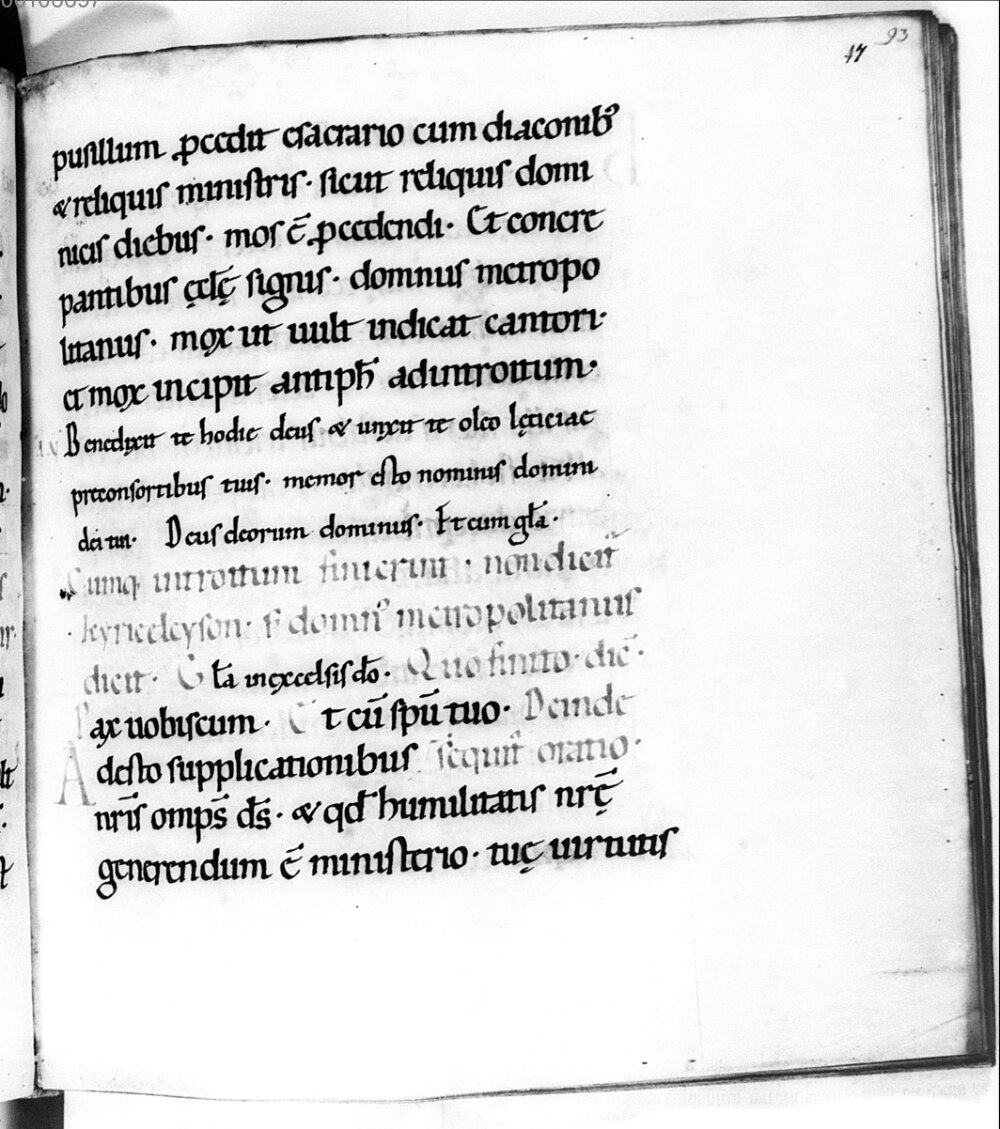 93
47
pusillum ꝓcedit e sacrario cum diaconib᷒
& reliquis ministris· sicut reliquis domi
nicis diebus· mos ē ꝓcedendi· Et concre
pantibus ęcl̄ę signis· domnus metropo
litanus· mox ut uult indicat cantori·
et mox incipit antiph̄ ad introitum·
Benedixit te hodie deus & unxit te oleo lęticiae
pre consortibus tuis· memor esto nominis domini
dei tui· Deus deorum dominus· Et cum gl̄a·
Cumq; introitum finierint· non dicit᷒
kyrieeleyson· s; domn᷒ metropolitanus
dicit· Gl̄a in excelsis do̅· Quo finito· dic̄·
Pax uobiscum· Et cū sp̄u tuo· Deinde
Adesto supplicationibus seq̇uit᷒ oratio·
nr̄is omp̄s d̄s· & qd̄ humilitatis nr̄ę
generendum ē ministerio· tuę uirtutis